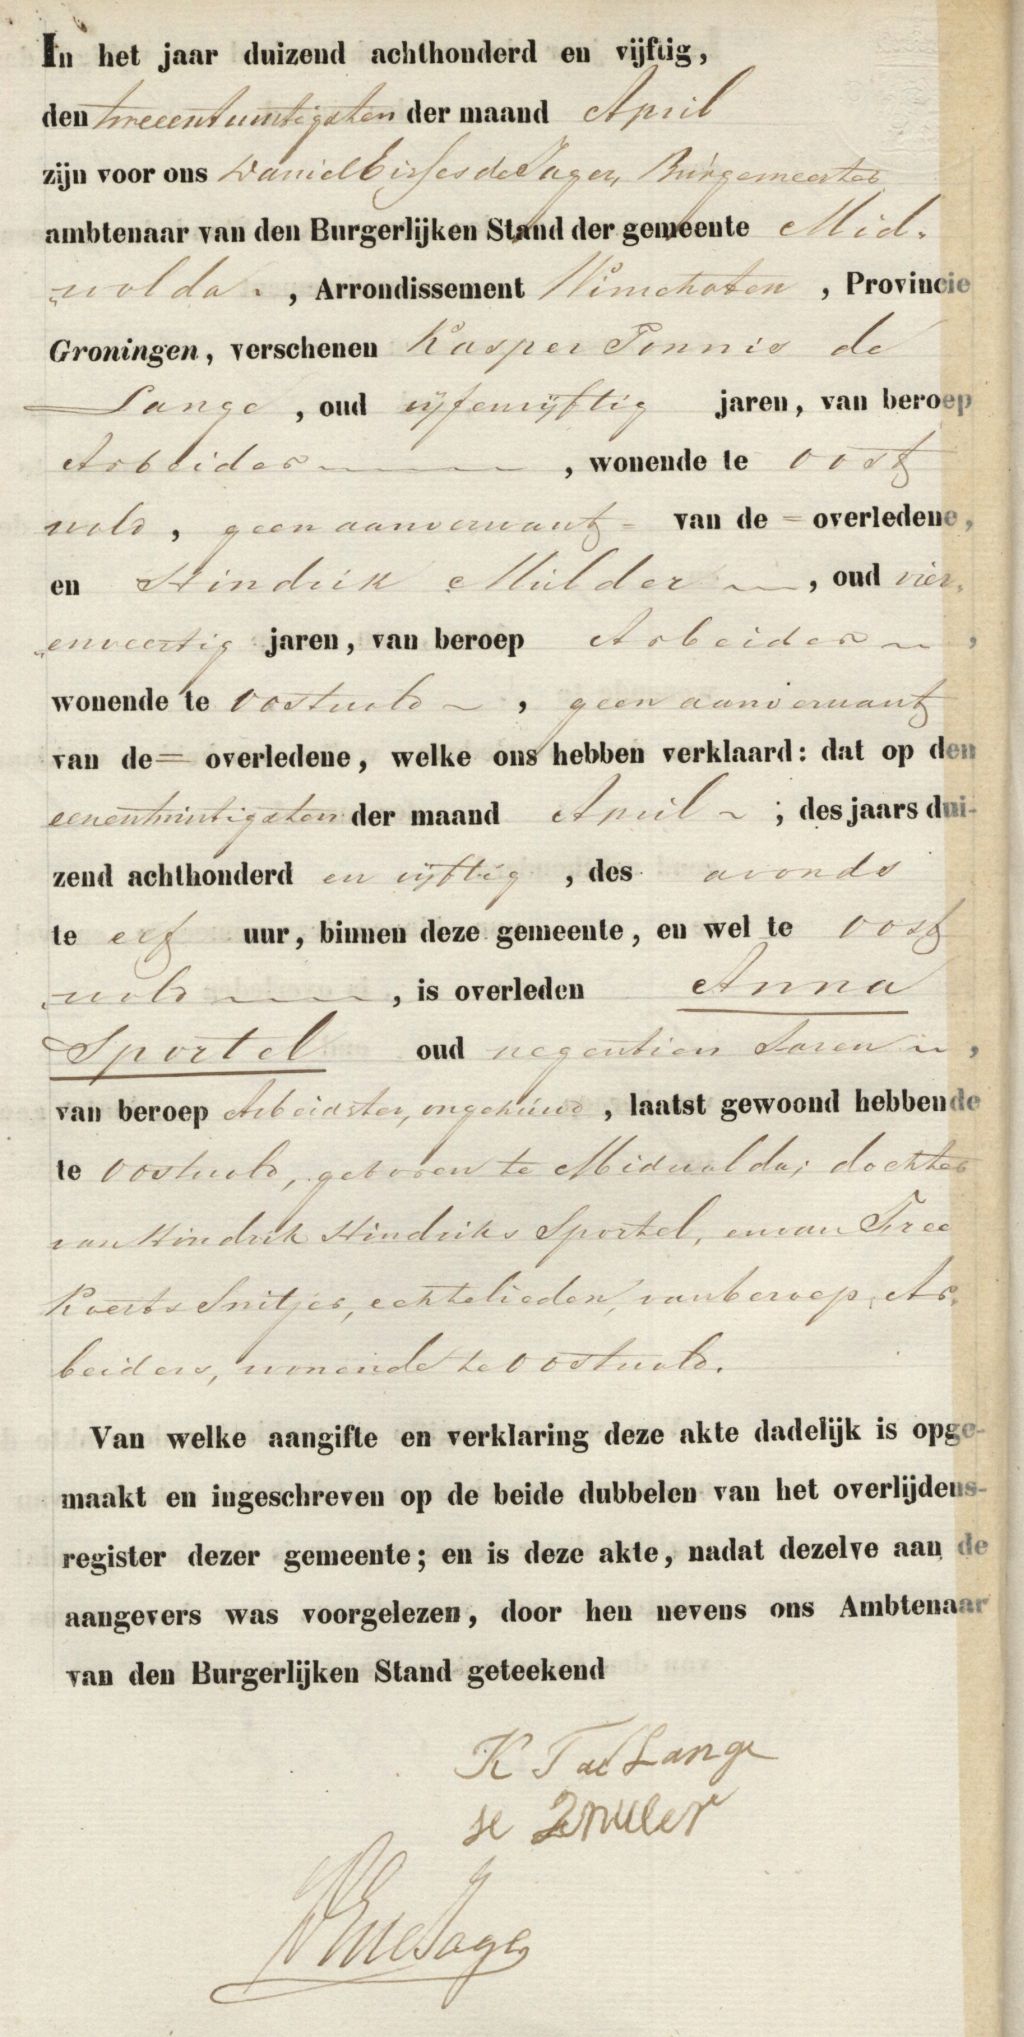 In het jaar duizend achthonderd en vijftig,
den tweeentwintigsten der maand April
zijn voor ons Daniel Eisses de Jager, Burgemeester
ambtenaar van den Burgerlijken Stand der gemeente Mid-
wolda, Arrondissement Winschoten, Provincie
Groningen, verschenen Kasper Tonnis de
Lange, oud vijfenvijftig jaren, van beroep
Arbeider, wonende te Oost
wold, geen aanverwant van de = overledene,
en Hindrik Mulder, oud vier-
envertig jaren, van beroep Arbeider,
wonende te Oostwold, geen aanverwant
van de = overledene, welke ons hebben verklaard: dat op den
eenentwintigsten der maand April; des jaars dui-
zend achthonderd en vijftig, des avonds
te elf uur, binnen deze gemeente, en wel te Oost
wold, is overleden Anna
Sportel oud negentien Jaren,
van beroep Arbeidster, ongehuwd, laatst gewoond hebbende
te Oostwold, geboren te Midwolda; dochter
van Hindrik Hindriks Sportel, en van Tree
Koerts Snitjer, echtelieden, van beroep Ar-
beiders, wonende te Oostwold.
Van welke aangifte en verklaring deze akte dadelijk is opge-
maakt en ingeschreven op de beide dubbelen van het overlijdens-
register dezer gemeente; en is deze akte, nadat dezelve aan de
aangevers was voorgelezen, door hen nevens ons Ambtenaar
van den Burgerlijken Stand geteekend
K T de Lange
DE de Jager